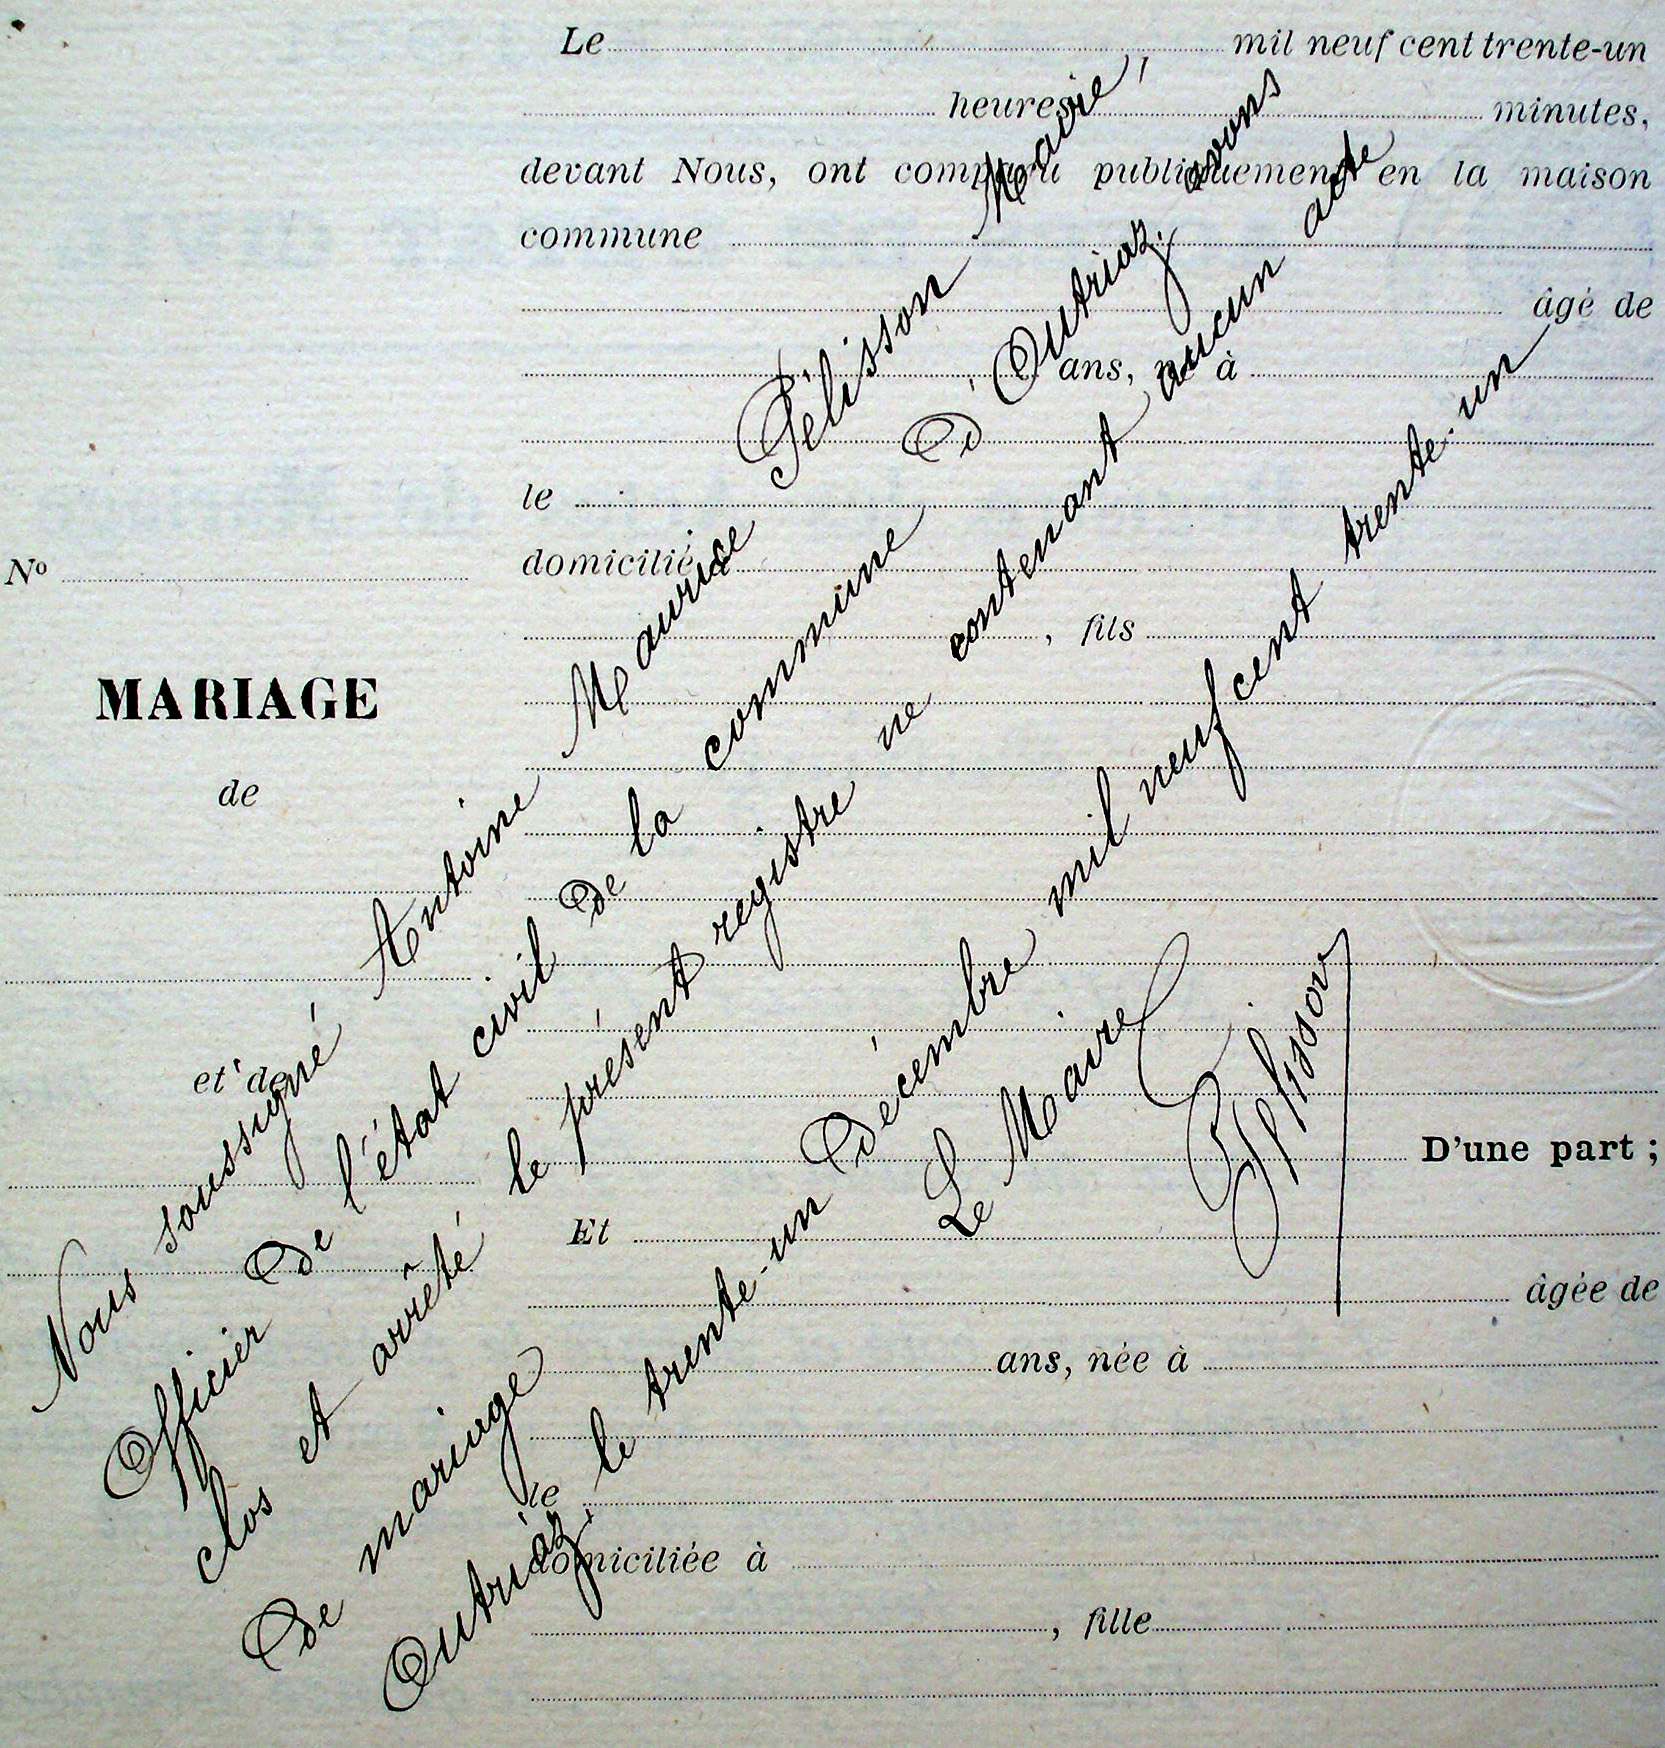 Le mil neuf cent trente-un
heures minutes,
devant Nous, ont comparu publiquement en la maison
commune
âgé de
ans, né à
le
domicilié à
, fils
D'une part ;
Et
âgée de
ans, née à
le
domiciliée à
, fille
No
MARIAGE
de
et de
Nous soussigné Antoine Maurice Pélisson Maire,
Officier de l'état civil de la commune d'Outriaz, avons
clos et arrêté le présent registre ne contenant aucun acte
de mariage
Outriaz, le trente-un décembre mil neuf cent trente-un
Le Maire
Pélisson